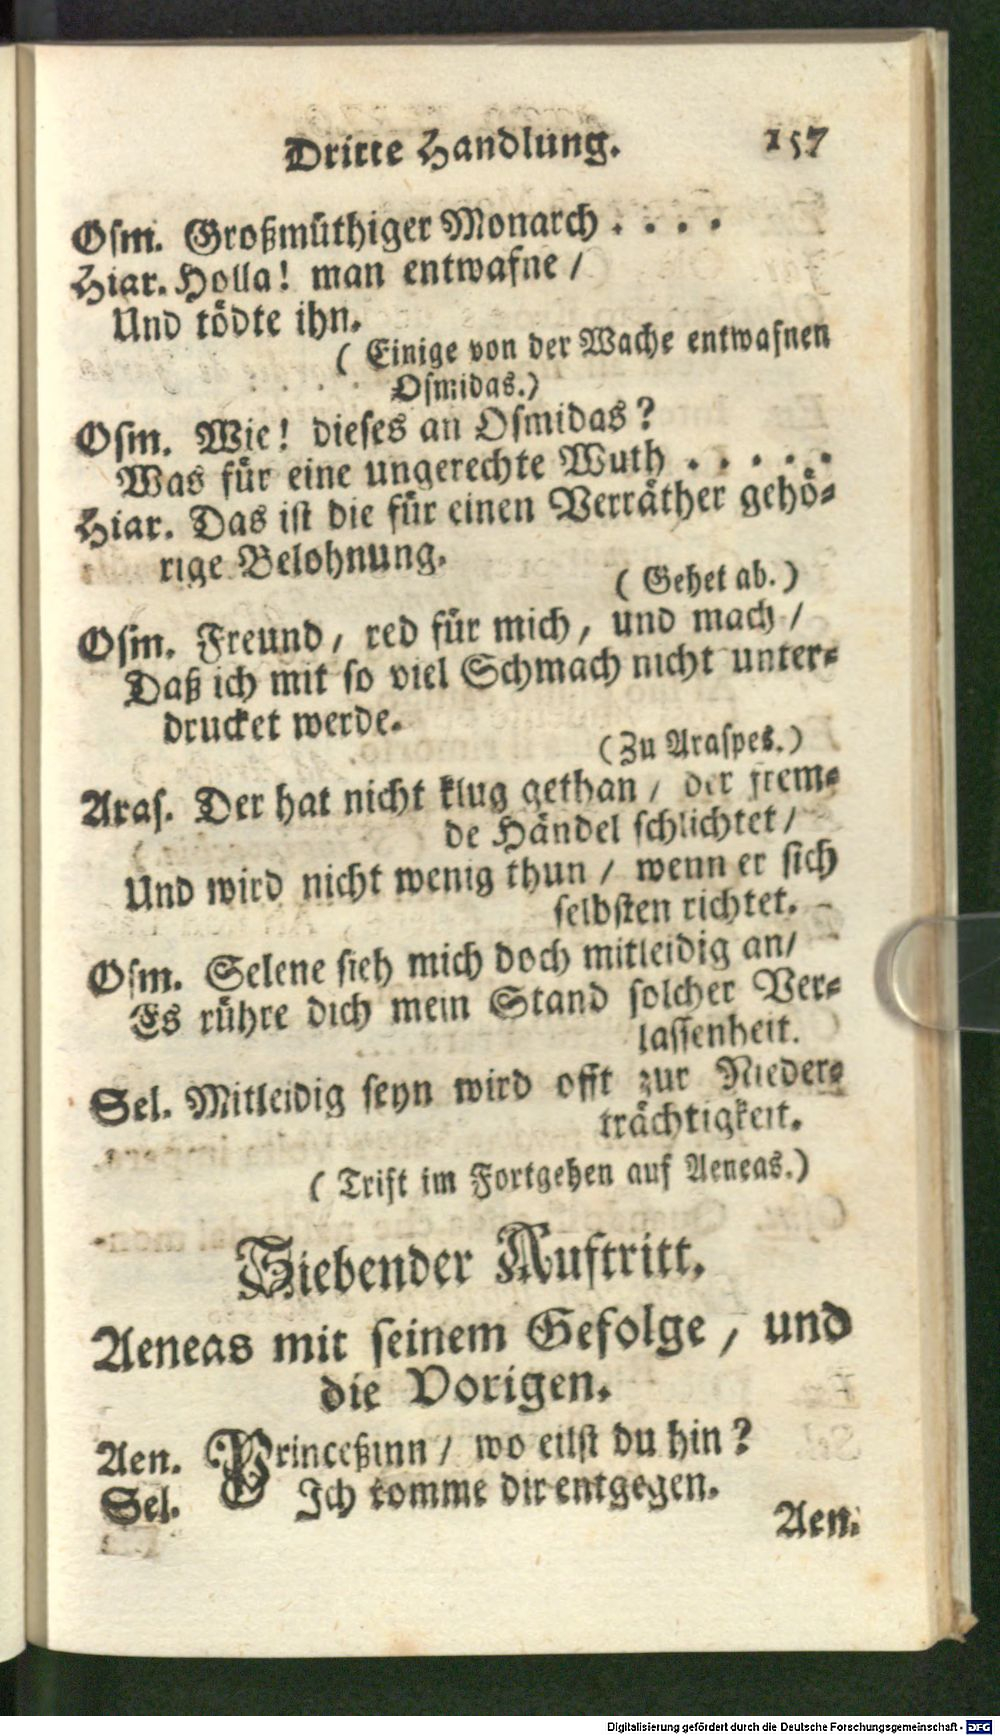 Dritte Handlung. 157
Osm. Großmüthiger Monarch . . . .
Hiar. Holla! man entwafne /
Und tödte ihn.
( Einige von der Wache entwafnen
Osmidas.)
Osm. Wie! dieses an Osmidas?
Was für eine ungerechte Wuth . . . . .
Hiar. Das ist die für einen Verräther gehö-
rige Belohnung.
( Gehet ab. )
Osm. Freund, red für mich, und mach /
Daß ich mit so viel Schmach nicht unter-
drucket werde.
(Zu Araspes.)
Aras. Der hat nicht klug gethan / der frem-
de Händel schlichtet /
Und wird nicht wenig thun / wenn er sich
selbsten richtet.
Osm. Selene sieh mich doch mitleidig an/
Es rühre dich mein Stand solcher Ver-
lassenheit.
Sel. Mitleidig seyn wird offt zur Nieder-
trächtigkeit.
( Trift im Fortgehen auf Aeneas.)
Siebender Auftritt.
Aeneas mit seinem Gefolge, und
die Vorigen.
Aen. Princeßinn / wo eilst du hin?
Sel. Ich komme dir entgegen.
Aen.
Digitalisierung gefördert durch die Deutsche Forschungsgemeinschaft - DFG